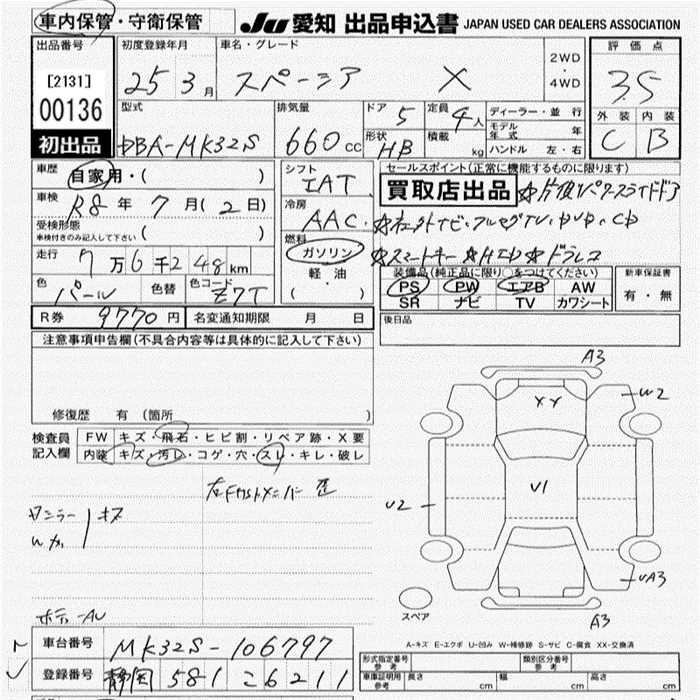 車内保管・守衛保管 JU 愛知 出品申込書 JAPAN USED CAR DEALERS ASSOCIATION
出品番号 初度登録年月 車名・グレード 2WD ・ 4WD 評価点
[2131] 25 3月 スペーシア X 3.5
00136 型式 排気量 ドア 5 定員 4人 ディーラー・並行 外装 内装
初出品 DBA-MK32S 660cc 形状 HB 積載 kg モデル年式 年 C B
ハンドル 左・右
車歴 自家用・( ) シフト IAT セールスポイント(正常に機能するものに限ります)
車検 R8年 7月(2日) 冷房 AAC 買取店出品 ☆片側パワースライドドア
受検形態 車検付きのみ記入して下さい ( ) 燃料 ☆社外ナビ・フルセグTV・DVD・CD
走行 7万6千248km ガソリン ☆スマートキー ☆HID ☆ドラレコ
軽・油 装備品(純正品に限り○をつけてください) 新車保証書
色 パール 色替 色コード Z7T ( ) PS PW エアB AW 有・無
SR ナビ TV カワシート
R券 9770円 名変通知期限 月 日 後日品
注意事項申告欄(不具合内容等は具体的に記入して下さい)
A3
W2
XX
修復歴 有 (箇所 )
検査員記入欄 FW キズ・飛石・ヒビ割・リペア跡・X要
内装 キズ・汚レ・コゲ・穴・スレ・キレ・破レ
U1
U2
キズ
UA3
スペア
A3
A-キズ E-エクボ U-凹み W-補修跡 S-サビ C-腐食 XX-交換済
車台番号 MK32S-106797
形式指定番号 参考 類別区分番号 参考
登録番号 静岡 581 こ 6211
車庫証明用 参考 長さ cm 幅 cm 高さ cm